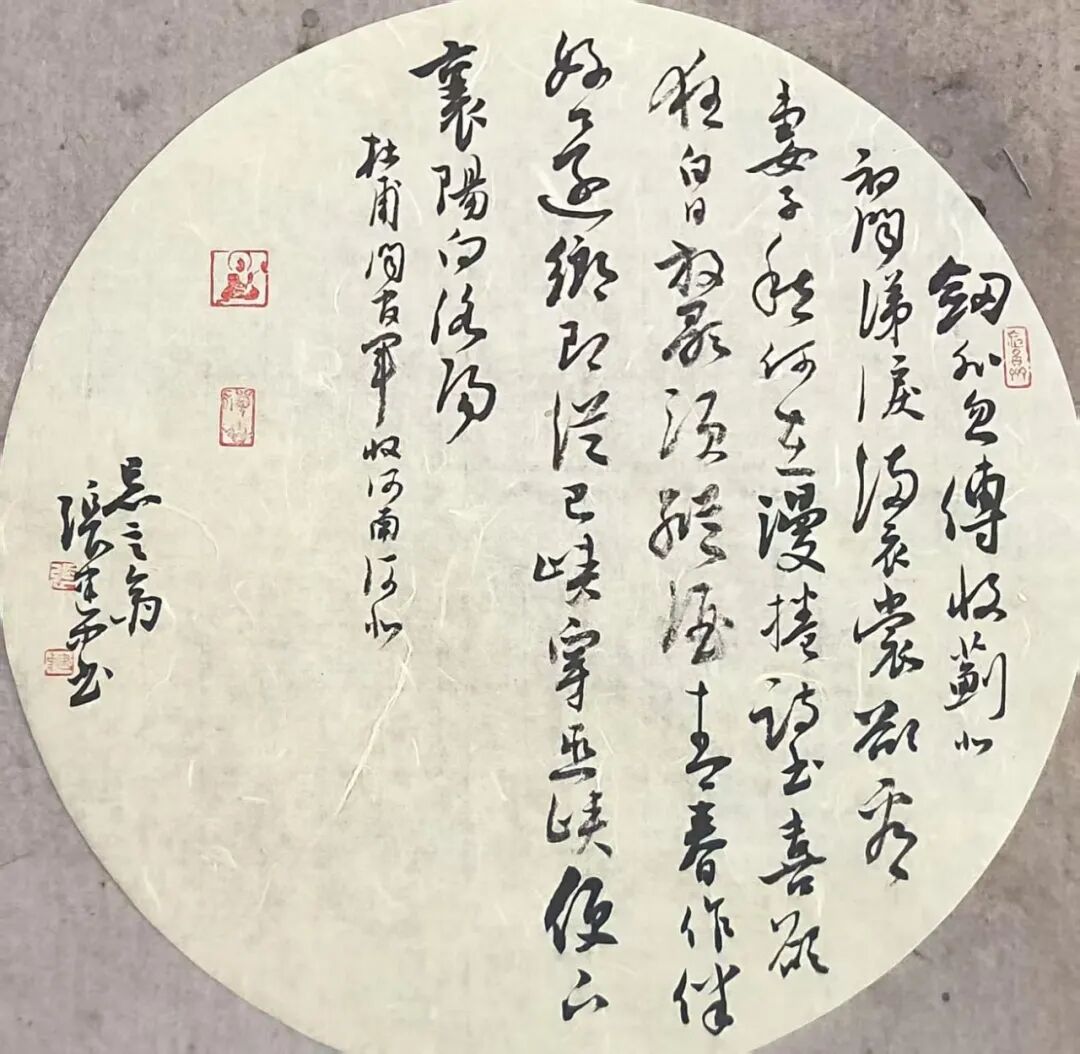 釼外忽傳收薊北
初聞涕淚滿衣裳卻看
妻子愁何在漫捲詩書喜欲
狂白日放歌須縱酒青春作伴
好還鄉即從巴峽穿巫峽便下
襄陽向洛陽
杜甫聞官軍收河南河北
忘之翁
張建書